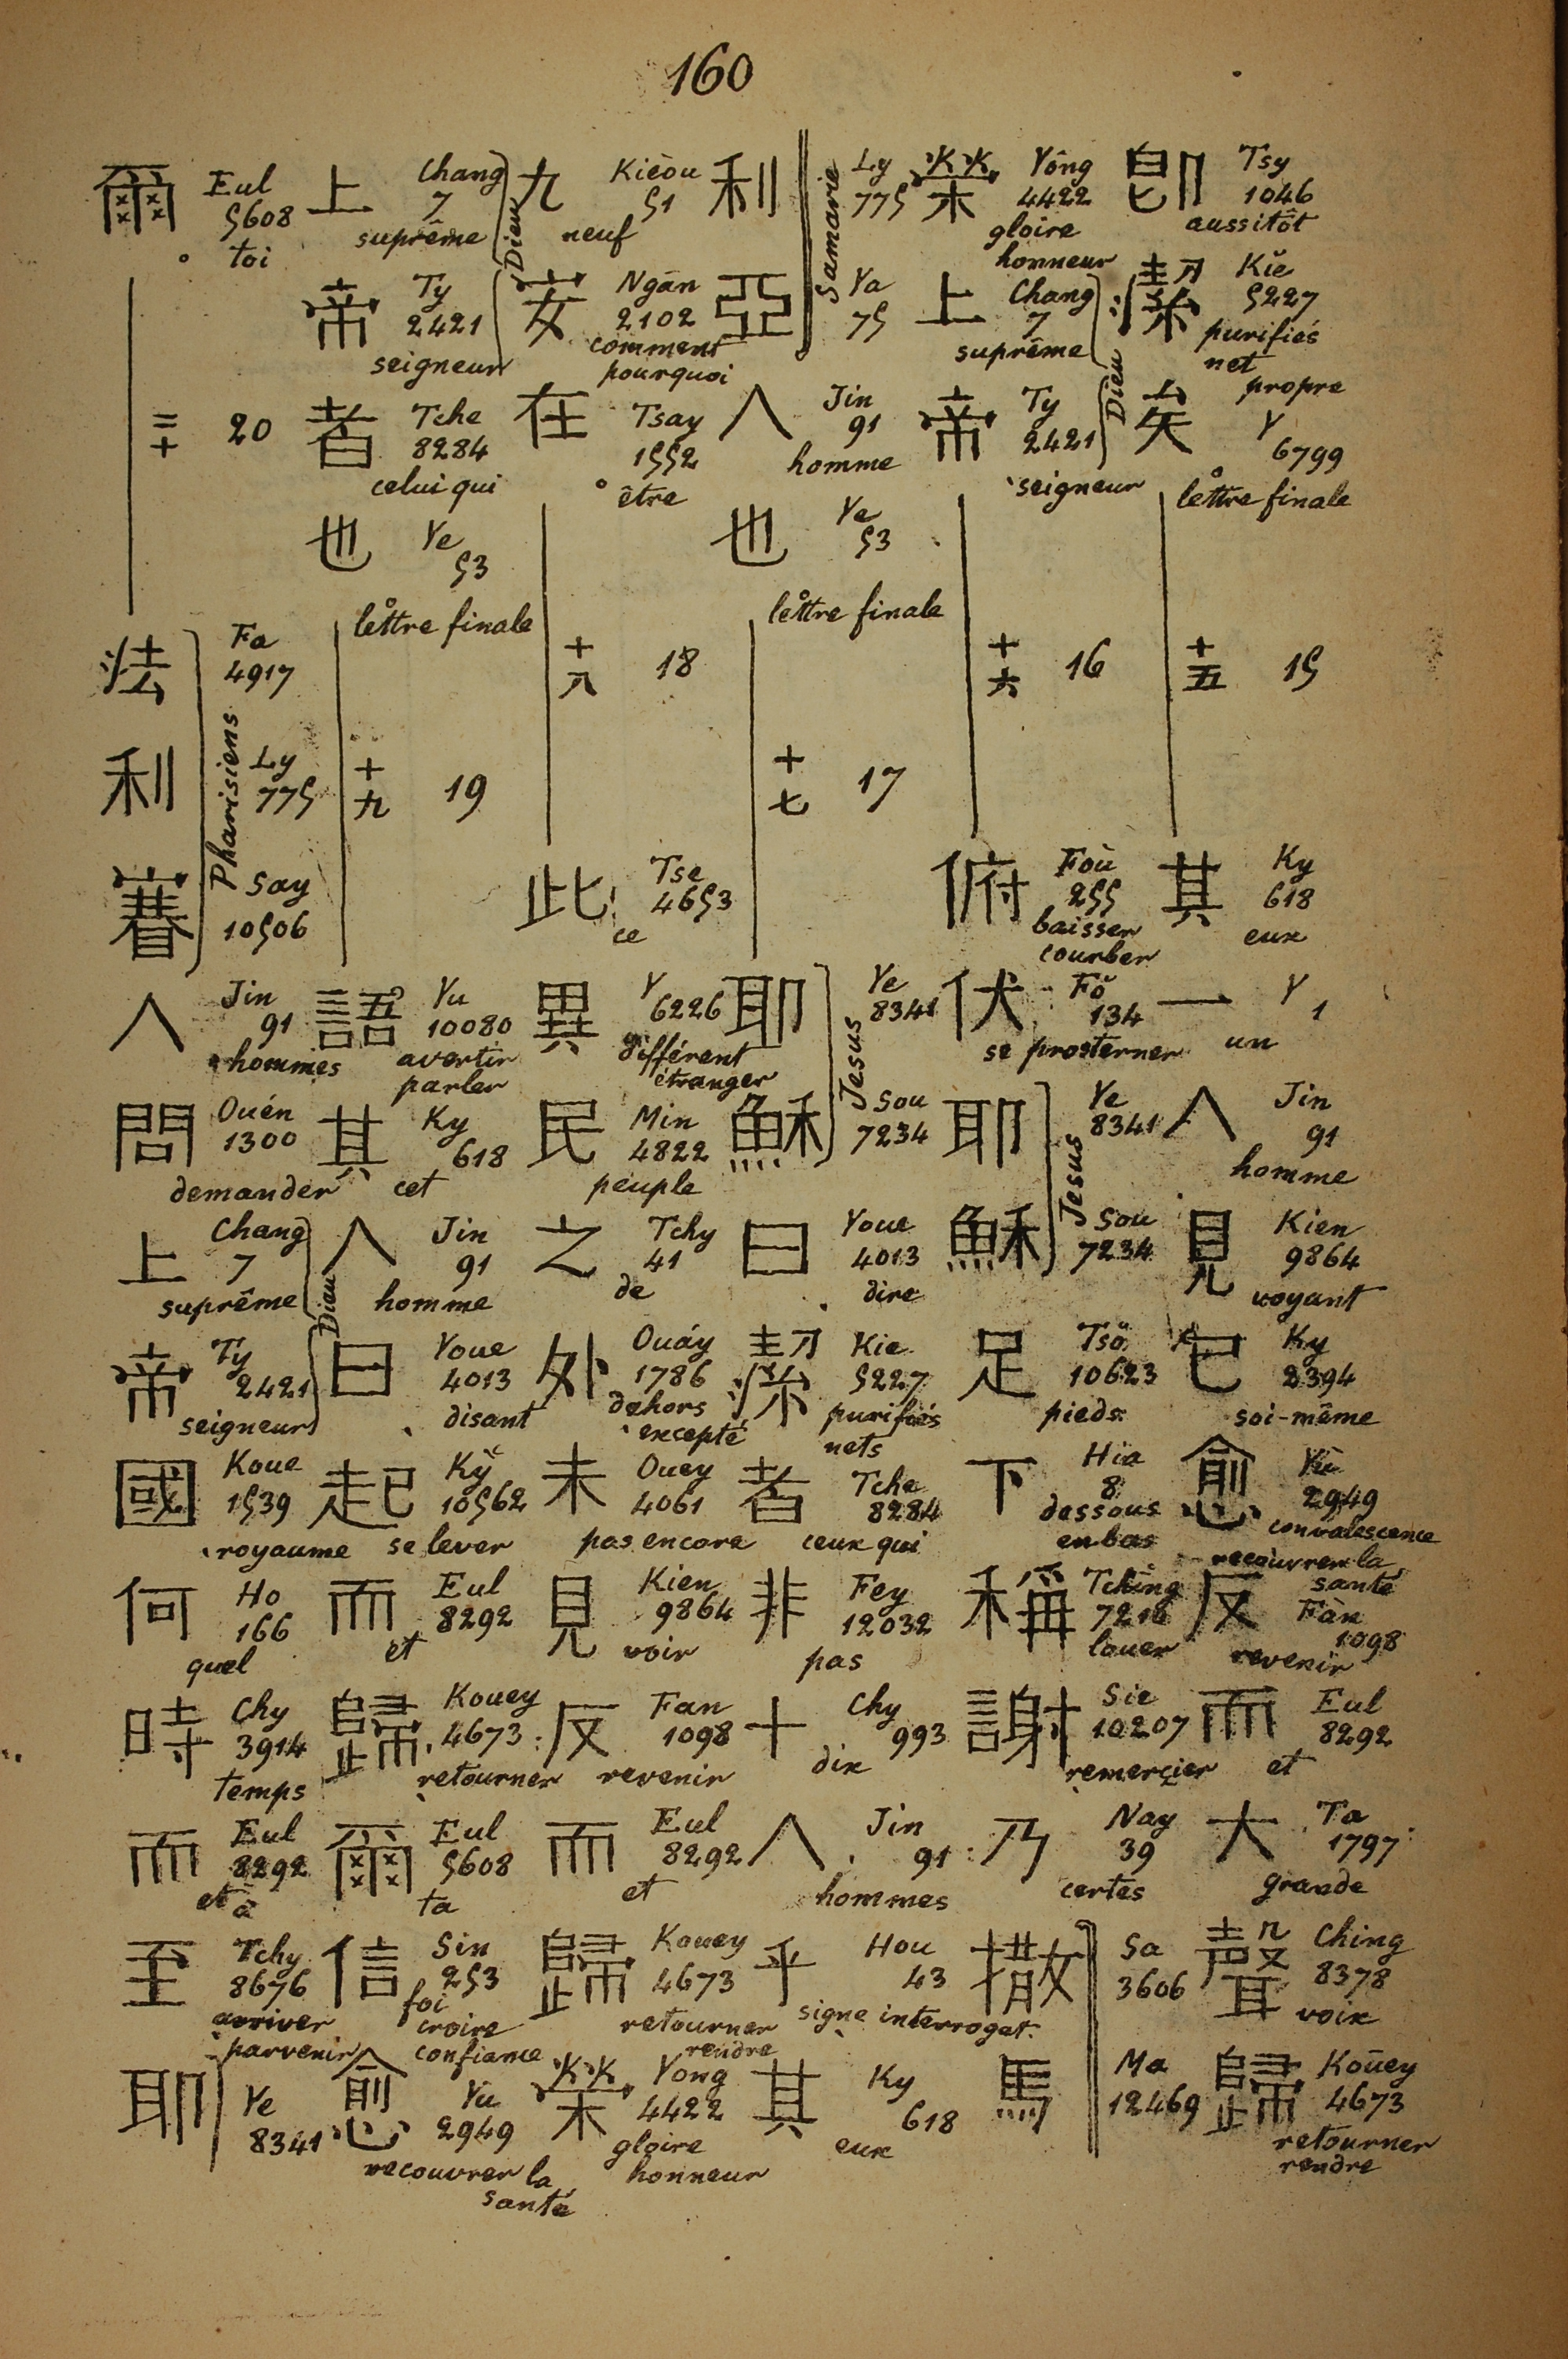 160
卽 Tsy 1046 aussitôt
潔 Kiě 5227 purifiés net propre
矣 Y 6799 lettre finale
十五 15
其 Ky 618 eux
一 Y 1 un
人 Jin 91 homme
見 Kien 9864 voyant
己 Ky 2394 soi-même
愈 Yù 2949 convalescence recouvrer la santé
反 Fàn 1098 revenir
而 Eul 8292 et
大 Ta 1797 grande
聲 Ching 8378 voix
歸 Koūey 4673 retourner rendre
榮 Yông 4422 gloire honneur
上 Chang 7 suprême
Dieu
帝 Ty 2421 seigneur
十六 16
俯 Foù 255 baisser courber
伏 Fŏ 134 se prosterner
耶 Ye 8341
Jesus
穌 Sou 7234
足 Tsŏ 10623 pieds
下 Hia 8 dessous en bas
稱 Tching 7216 louer
謝 Sie 10207 remercier
乃 Nay 39 certes
撒 Sa 3606
馬 Ma 12469
利 Ly 775
Samarie
亞 Ya 75
人 Jin 91 homme
也 Ye 53 lettre finale
十七 17
耶 Ye 8341
Jesus
穌 Sou 7234
曰 Youe 4013 dire
潔 Kie 5227 purifiés nets
者 Tche 8284 ceux qui
非 Fey 12032 pas
十 Chy 993 dix
人 Jin 91 hommes
乎 Hou 43 signe interrogat.
其 Ky 618 eux
九 Kièou 51 neuf
安 Ngān 2102 comment pourquoi
在 Tsay 1552 être
十八 18
此 Tse 4653 ce
異 Y 6226 différent étranger
民 Min 4822 peuple
之 Tchy 41 de
外 Ouáy 1786 dehors excepté
未 Ouey 4061 pas encore
見 Kien 9864 voir
反 Fan 1098 revenir
而 Eul 8292 et
歸 Kouey 4673 retourner rendre
榮 Yong 4422 gloire honneur
上 Chang 7 suprême
Dieu
帝 Ty 2421 seigneur
者 Tche 8284 celui qui
也 Ye 53 lettre finale
十九 19
語 Yu 10080 avertir parler
其 Ky 618 cet
人 Jin 91 homme
曰 Youe 4013 disant
起 Kỳ 10562 se lever
而 Eul 8292 et
歸 Kouey 4673 retourner
爾 Eul 5608 ta
信 Sin 253 foi croire confiance
愈 Yù 2949 recouvrer la santé
爾 Eul 5608 toi
二十 20
法 Fa 4917
Pharisiens
利 Ly 775
賽 Say 10506
人 Jin 91 hommes
問 Ouén 1300 demander
上 Chang 7 suprême
Dieu
帝 Ty 2421 seigneur
國 Koue 1539 royaume
何 Ho 166 quel
時 Chy 3914 temps
而 Eul 8292 et à
至 Tchy 8676 arriver parvenir
耶 Ye 8341